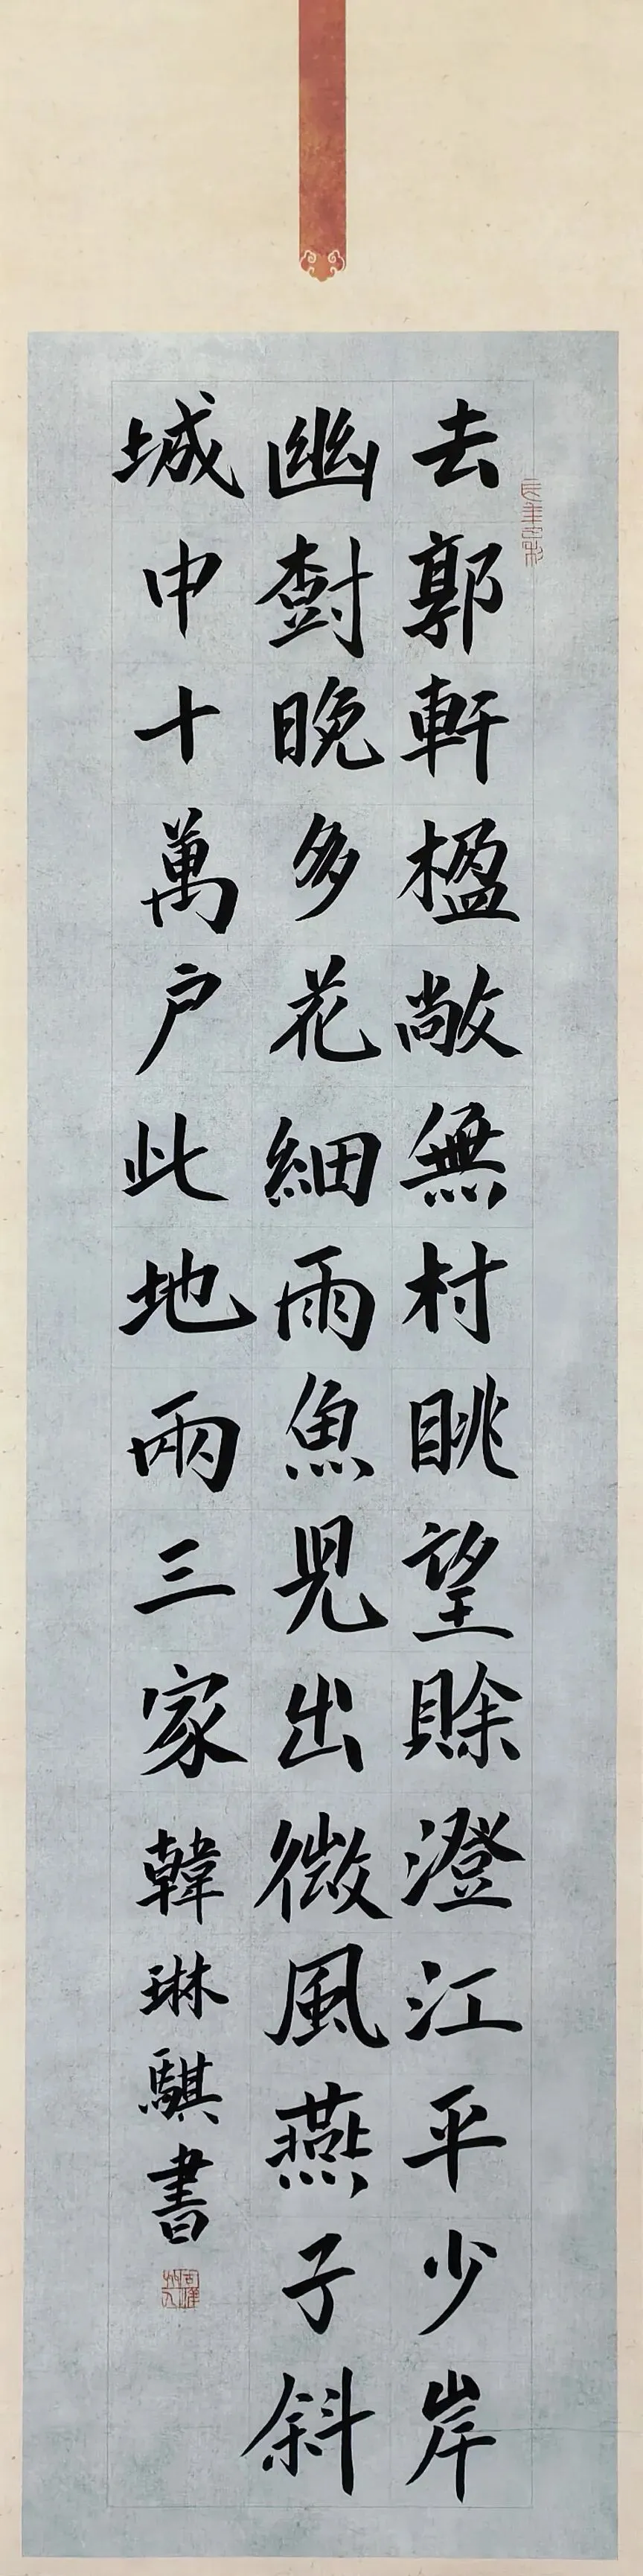 去郭軒楹敞無村眺望賒澄江平少岸
幽樹晚多花細雨魚兒出微風燕子斜
城中十萬户此地兩三家韓琳騏書